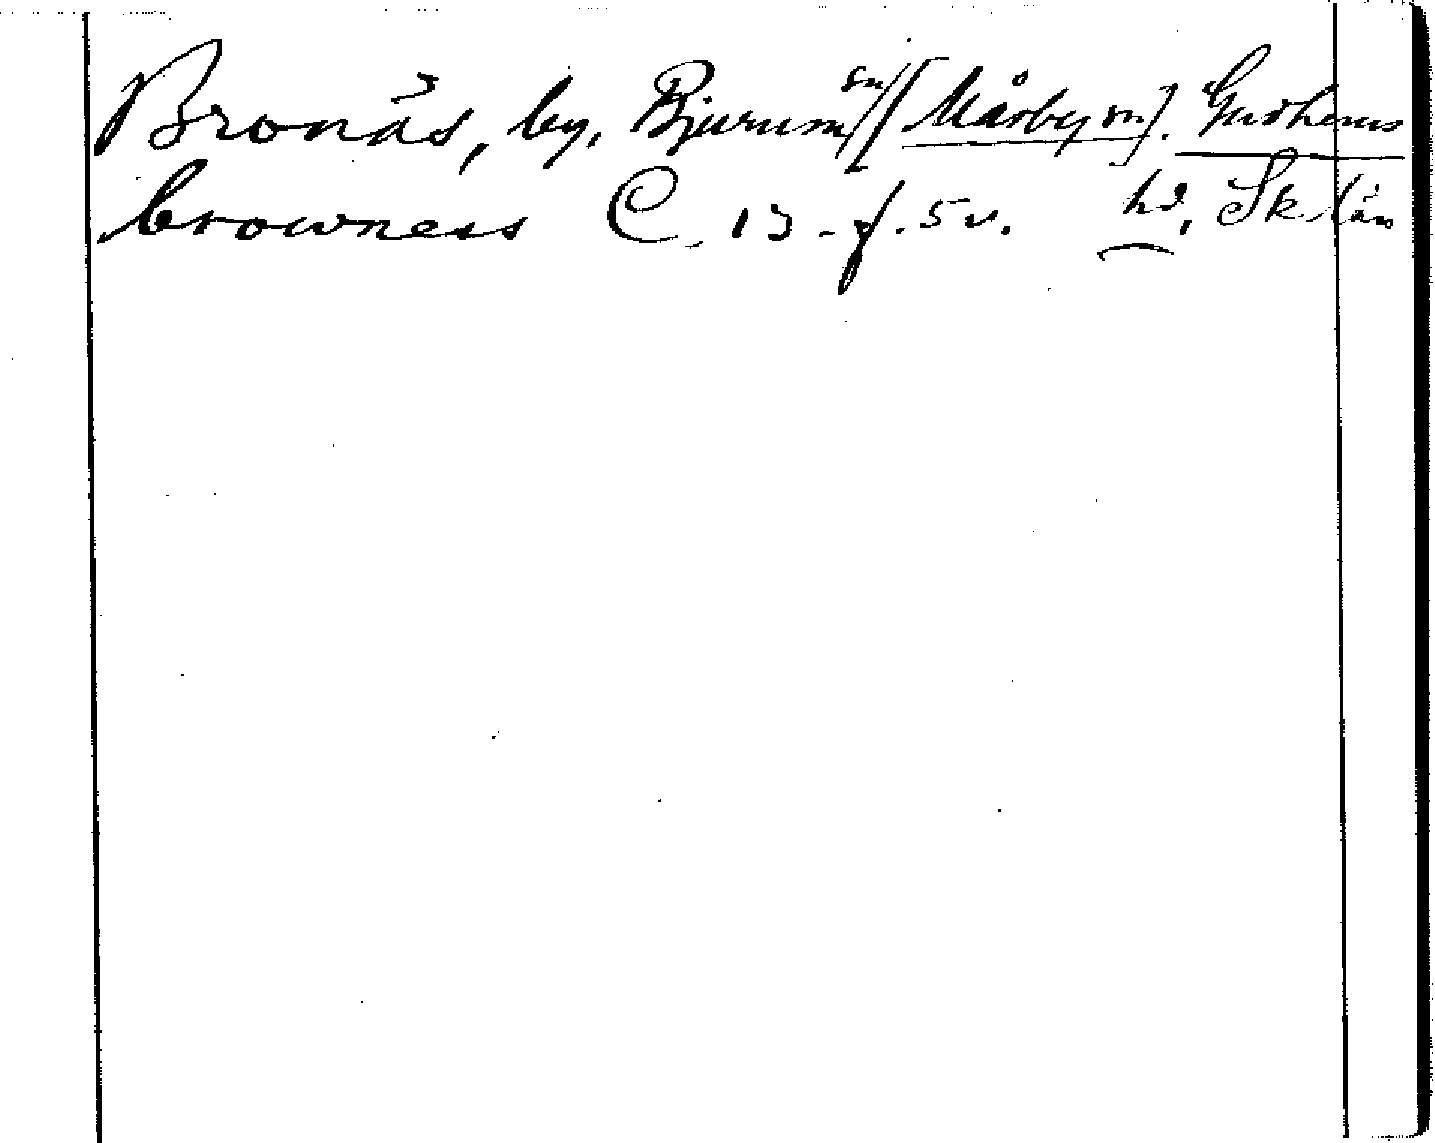 Bronäs, by, Bjurum sn/[Mårby sn]. Gudhems
browness C. 13 - f. 5 v. hd, Sk län